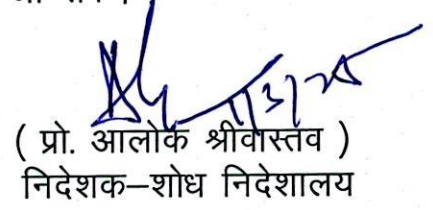 ( प्रो. आलोक श्रीवास्तव )
निदेशक–शोध निदेशालय